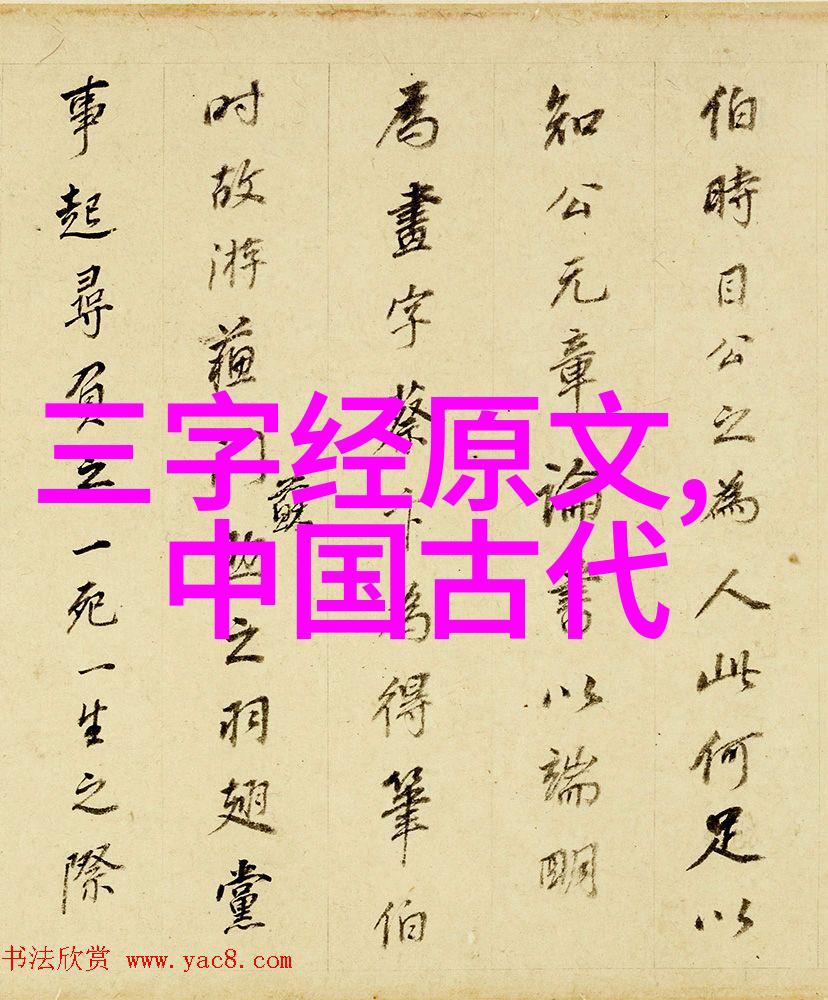 伯時目公之為人此何足以
知公元章論書以端明
為畫字蔡卞為得筆伯
时故游蘓门之羽翅黨
事起尋負之一死一生之際
三字经原文,
中国古代
书法欣赏 www.yac8.com